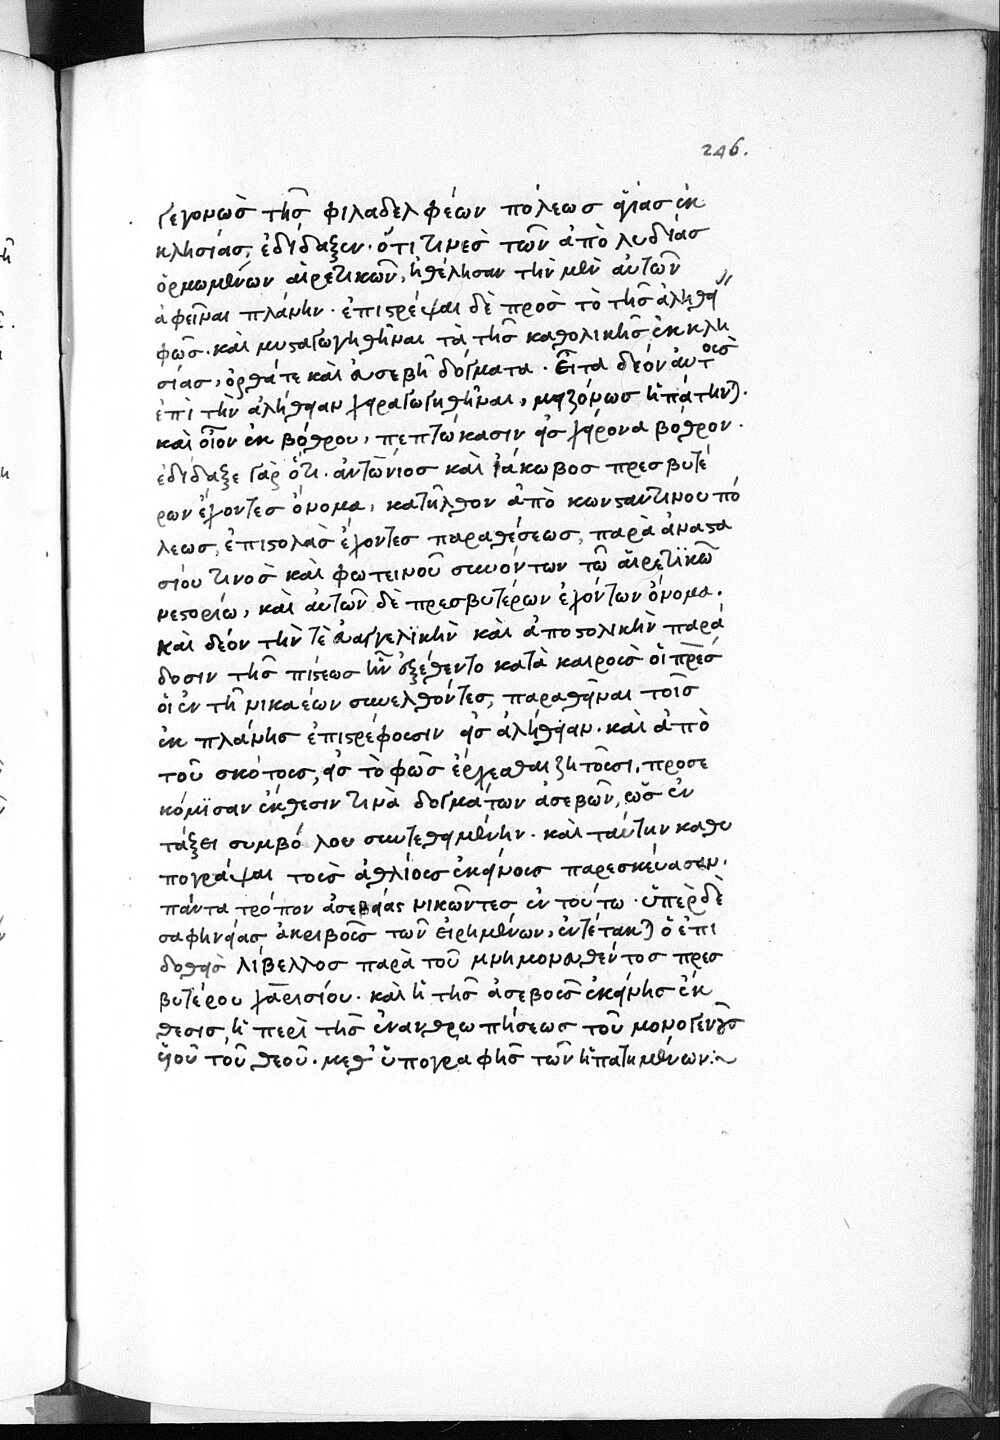 246.
γεγονὼς τῆς φιλαδελφέων πόλεως ἁγίας ἐκ
κλησίας, ἐδίδαξεν· ὅτι τινὲς τῶν ἀπὸ λυδίας
ὁρμωμένων αἱρετικῶν, ἠθέλησαν τὴν μὲν αὐτῶν
ἀφεῖναι πλάνην· ἐπιστρέψαι δὲ πρὸς τὸ τῆς ἀληθεί
φῶς· καὶ μυσταγωγηθῆναι τὰ τῆς καθολικῆς ἐκκλη
σίας, ὀρθά τε καὶ εὐσεβῆ δόγματα. Εἶτα δέον αὐτοὺς
ἐπὶ τὴν ἀλήθειαν χειραγωγηθῆναι, μειζόνως ἠπάτηνται·
καὶ οἷον ἐκ βόθρου, πεπτώκασιν εἰς χείρονα βόθρον·
ἐδίδαξε γὰρ ὅτι· ἀντώνιος καὶ ἰάκωβος πρεσβυτέ
ρων ἔχοντες ὄνομα, κατῆλθον ἀπὸ κωνσταντινουπό
λεως, ἐπιστολὰς ἔχοντες παραθέσεως, παρὰ ἀναστα
σίου τινὸς καὶ φωτεινοῦ συνόντων τῶ αἱρετϊκῶ
νεστορίω, καὶ αὐτῶν δὲ πρεσβυτέρων ἐχόντων ὄνομα.
καὶ δέον τὴν τὲ εὐαγγελϊκὴν καὶ ἀποστολικὴν παρά
δοσιν τῆς πίστεως ἣν ἐξέθεντο κατὰ καιροὺς οἱ πρες
οἱ ἐν τῆ νικαέων συνελθόντες, παραθεῖναι τοῖς
ἐκ πλάνης ἐπιστρέφουσιν εἰς ἀλήθειαν· καὶ ἀπὸ
τοῦ σκότους, εἰς τὸ φῶς ἔρχεσθαι ζητοῦσι, προσε
κόμϊσαν ἔκθεσιν τινὰ δογμάτων ἀσεβῶν, ὡς ἐν
τάξει συμβόλου συντεθειμένην· καὶ ταύτην καθυ
πογράψαι τοὺς ἀθλίους ἐκείνους παρεσκεύασαν.
πάντα τρόπον ἀσεβείας νικῶντες ἐν τούτω· ὑπὲρ δὲ
σαφηνείας ἀκριβοῦς τῶν εἰρημένων, ἐντέτακται ὁ ἐπι
δοθεὶς λίβελλος παρὰ τοῦ μνημονευθέντος πρεσ
βυτέρου χαρισίου· καὶ ἡ τῆς ἀσεβοῦς ἐκείνης ἔκ
θεσις, ἡ περὶ τῆς ἐνανθρωπήσεως τοῦ μονογενοῦς
ϋἱοῦ τοῦ θεοῦ· μεθ' ὑπογραφῆς τῶν ἠπατημένων:~